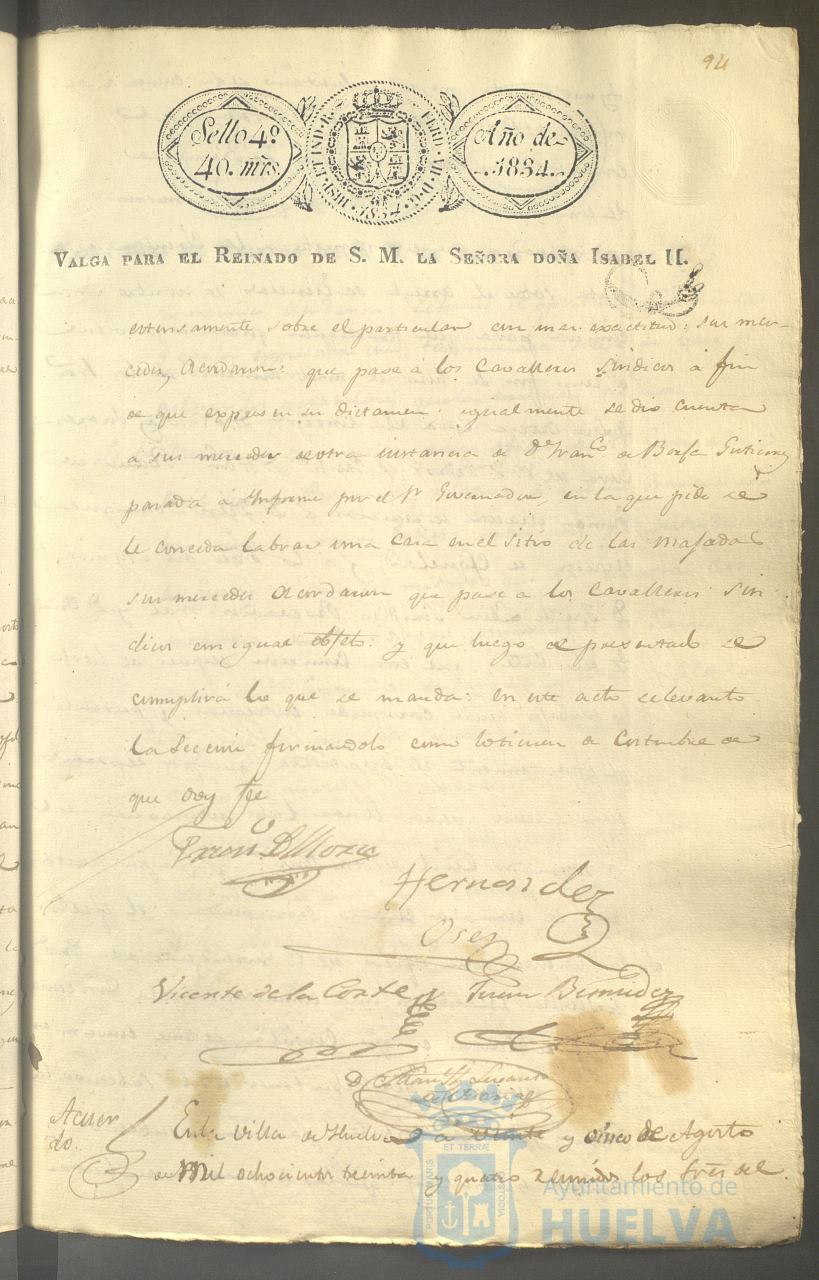 94
Sello 4º
40. mrs.
HISP. ET IND. R. FERD. VII. D. G. 1834
Año de
1834.
VALGA PARA EL REINADO DE S. M. LA SEÑORA DOÑA ISABEL II.
estensamente sobre el particular con mas exactitud: sus mer-
cedes, Acordaron: que pase á los Cavalleros sindicos á fin
de que expresen su dictamen. igualmente se dio cuenta
a sus mercedes de otra instancia de Dn. Franco. de Borja Gutierrez
pasada á Informe por el Sr. Governador, en la que pide se
le conceda labrar una casa en el sitio de las Majadas
sus mercedes Acordaron que pase a los Cavalleros sin-
dicos con igual objeto: y que luego de presentado se
cumplirá lo que se manda: en este acto se levanto
la Seccion firmandolo como lo tienen de Costumbre de
que doy fee
Hernandez
Vicente de la Corte
Bermudez
Acuer
do.
En la Villa de Huelva a Viente y Cinco de Agosto
de Mil ochocientos treinta y quatro reunidos los Sres del
PORTUS MARIS ET TERRAE CUSTODIA
Ayuntamiento de
HUELVA